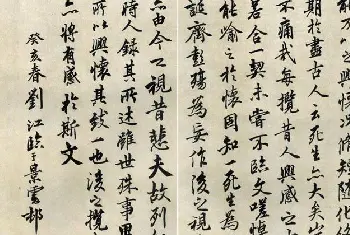 興懷況修短隨化終
期於盡古人云死生亦大矣豈
不痛哉每攬昔人興感之
若合一契未嘗不臨文嗟悼
能喻之於懷固知一死生為
誕齊彭殤為妄作後之視
亦由今之視昔悲夫故列
時人錄其所述雖世殊事異
所以興懷其致一也後之攬
亦將有感於斯文
癸亥春劉江臨于景雲邨